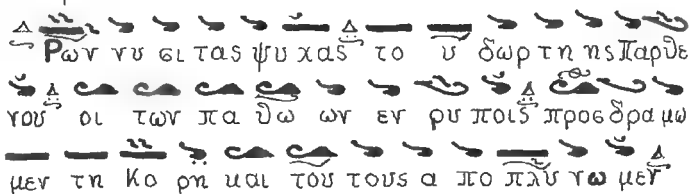 Ρων νυ σι τας ψυ χας το υ δωρ τη ης Παρθε
νου οι των πα θω ων εν ρυ ποις προσ δρα μω
μεν τη Κο ρη και του τους α πο πλυ νω μεν